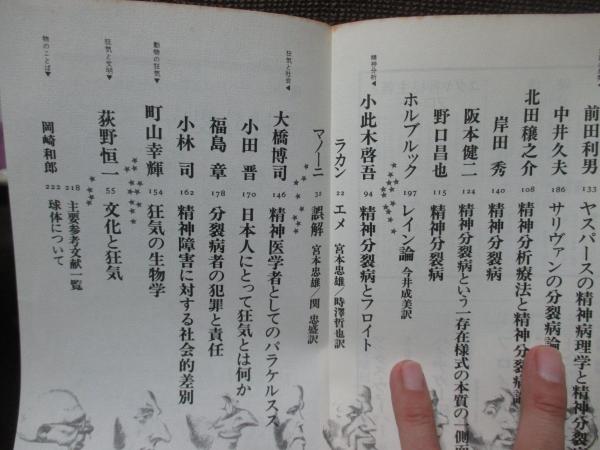 前田利男 133 ヤスパースの精神病理学と精神分裂病
中井久夫 186 サリヴァンの分裂病論
北田穣之介 108 精神分析療法と精神分裂病
岸田 秀 140 精神分裂病
阪本健二 124 精神分裂病という一存在様式の本質の一側面
野口昌也 115 精神分裂病
ホルブルック 197 レイン論 今井成美訳
精神分析▼
小此木啓吾 94 精神分裂病とフロイト
ラカン 22 エメ 宮本忠雄/時澤哲也訳
マノーニ 31 誤解 宮本忠雄/関 忠盛訳
狂気と社会▼
大橋博司 146 精神医学者としてのパラケルスス
小田 晋 170 日本人にとって狂気とは何か
福島 章 178 分裂病者の犯罪と責任
小林 司 162 精神障害に対する社会的差別
動物の狂気▼
町山幸輝 154 狂気の生物学
狂気と文明▼
荻野恒一 55 文化と狂気
218 主要参考文献一覧
物のことば▼
岡崎和郎 222 球体について